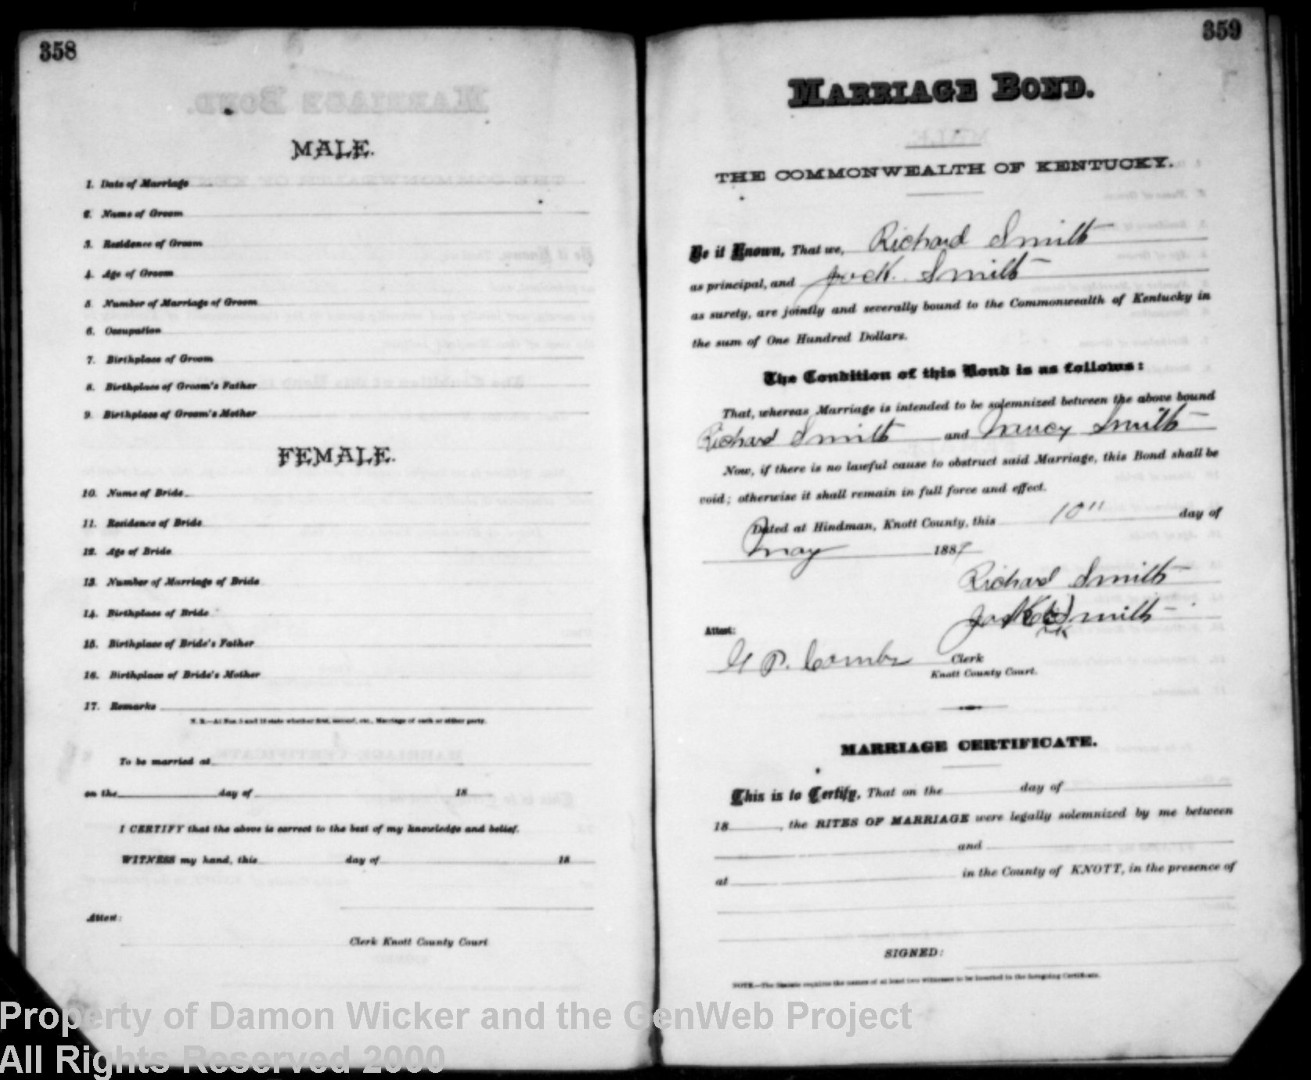 358
MALE.
1. Date of Marriage
2. Name of Groom
3. Residence of Groom
4. Age of Groom
5. Number of Marriage of Groom
6. Occupation
7. Birthplace of Groom
8. Birthplace of Groom's Father
9. Birthplace of Groom's Mother
FEMALE.
10. Name of Bride
11. Residence of Bride
12. Age of Bride
13. Number of Marriage of Bride
14. Birthplace of Bride
15. Birthplace of Bride's Father
16. Birthplace of Bride's Mother
17. Remarks
N. B.—At Nos. 5 and 13 state whether first, second, etc., Marriage of each or either party.
To be married at
on the day of 18
I CERTIFY that the above is correct to the best of my knowledge and belief.
WITNESS my hand, this day of 18
Attest:
Clerk Knott County Court
359
MARRIAGE BOND.
THE COMMONWEALTH OF KENTUCKY.
Be it Known, That we, Richard Smith
as principal, and Jack Smith
as surety, are jointly and severally bound to the Commonwealth of Kentucky in
the sum of One Hundred Dollars.
The Condition of this Bond is as follows:
That, whereas Marriage is intended to be solemnized between the above bound
Richard Smith and Nancy Smith
Now, if there is no lawful cause to obstruct said Marriage, this Bond shall be
void; otherwise it shall remain in full force and effect.
Dated at Hindman, Knott County, this 10" day of
May 1889
Richard Smith
Smith
Attest:
P. Combs Clerk
Knott County Court.
MARRIAGE CERTIFICATE.
This is to Certify, That on the day of
18 , the RITES OF MARRIAGE were legally solemnized by me between
and
at in the County of KNOTT, in the presence of
SIGNED:
NOTE.—The Statute requires the names of at least two witnesses to be inserted in the foregoing Certificate.
Property of Damon Wicker and the GenWeb Project
All Rights Reserved 2000